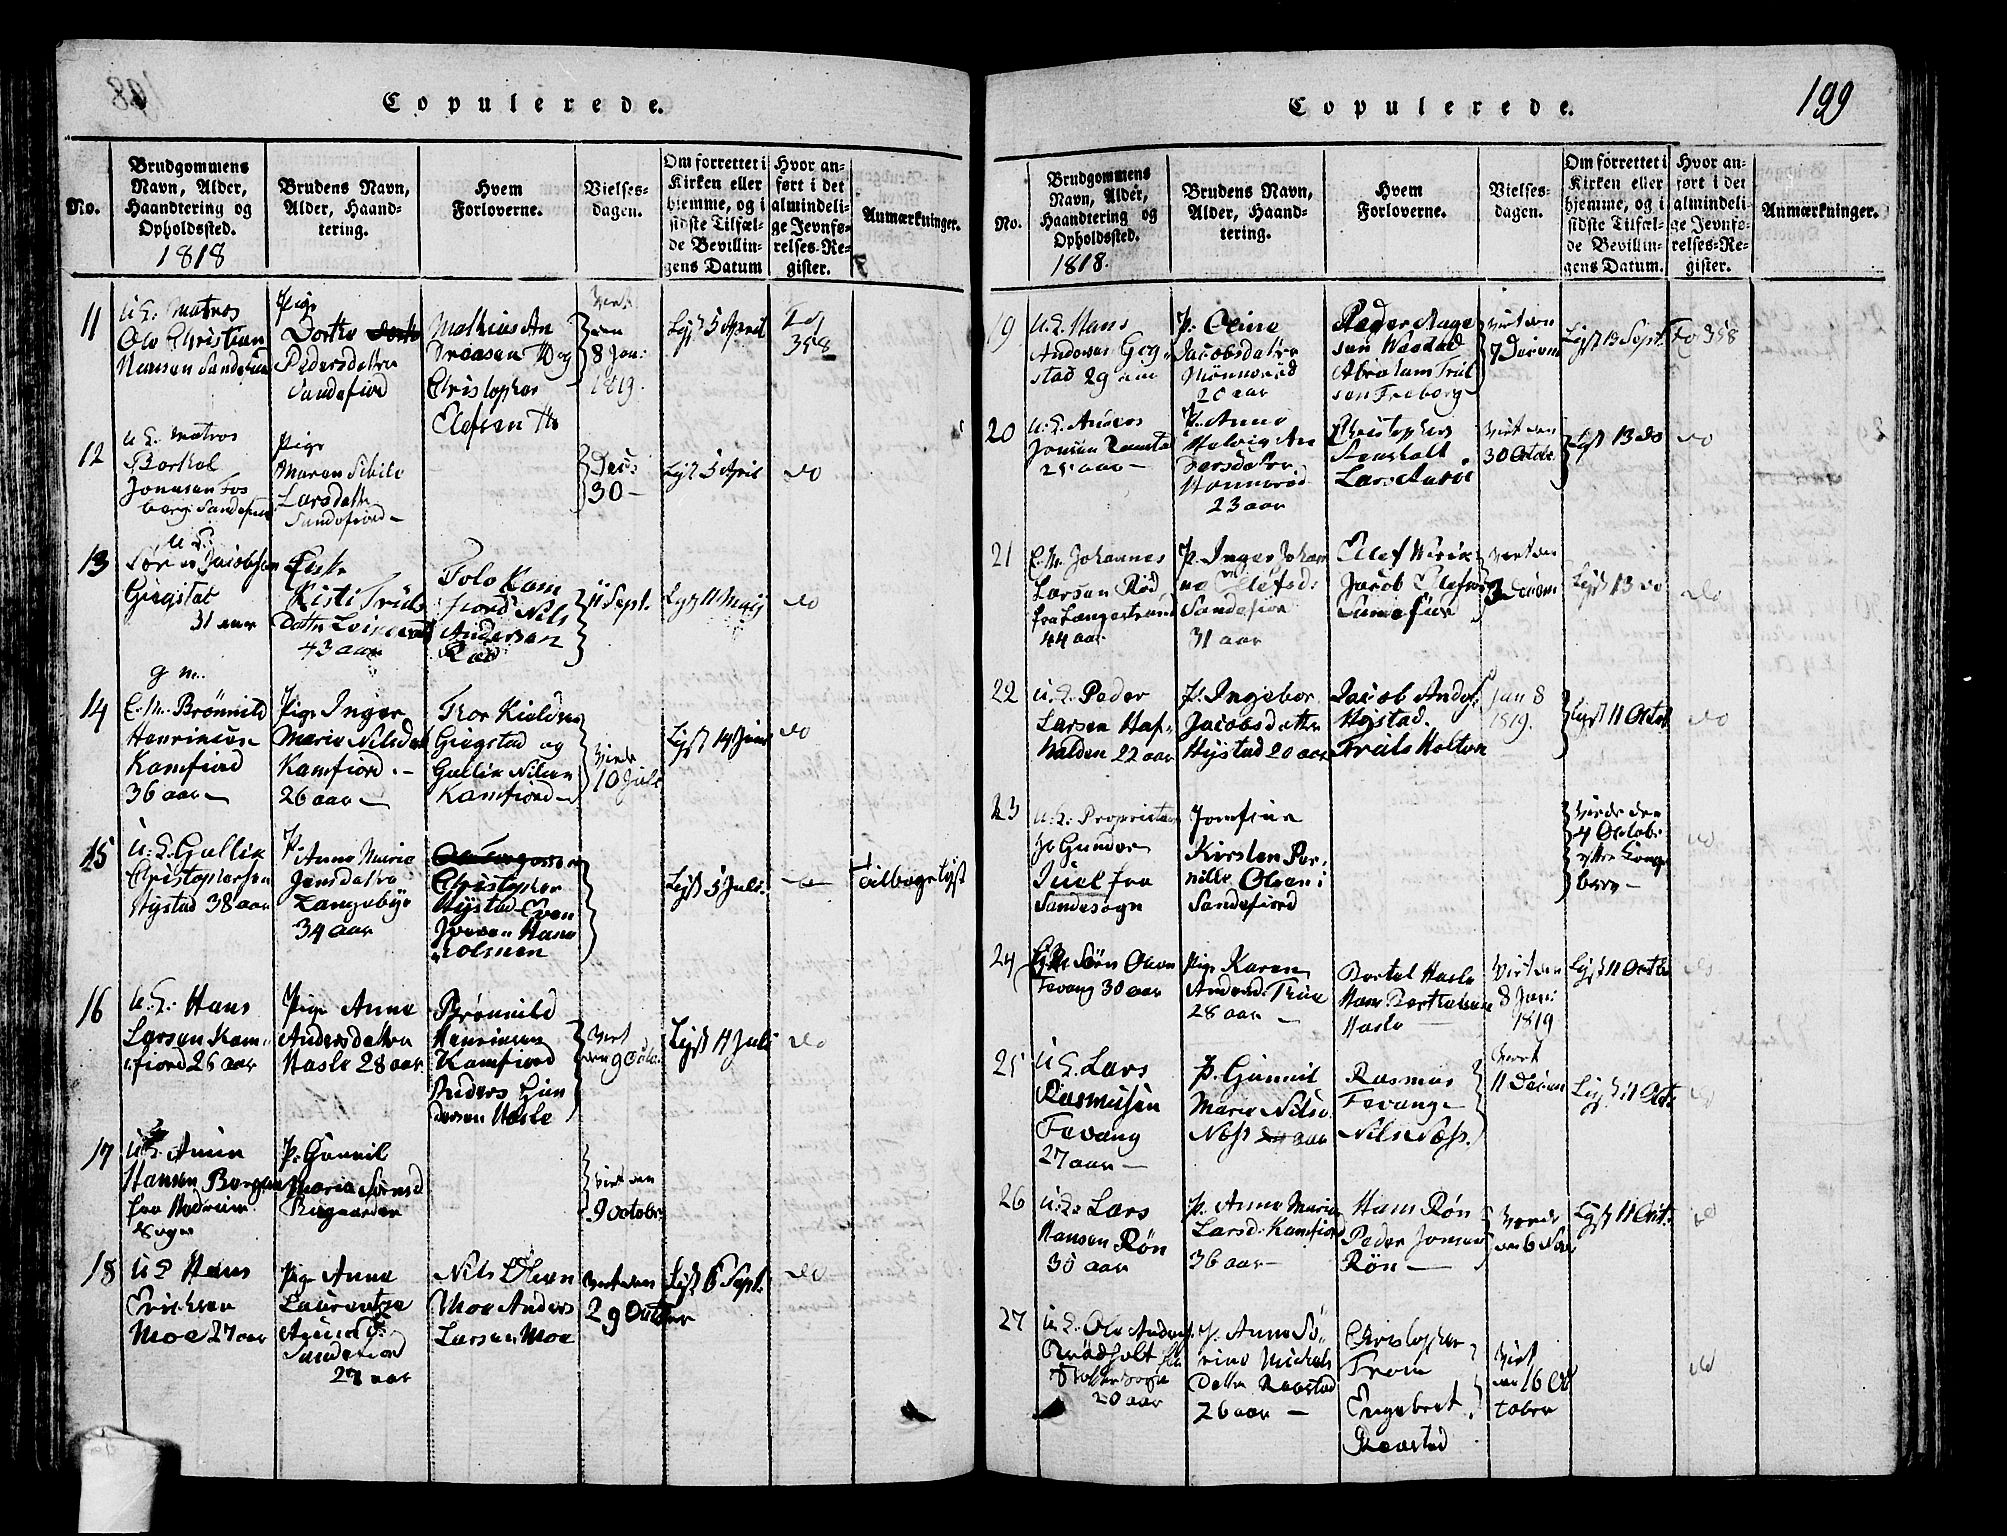 Copulerede.
No.
Brudgommens
Navn, Alder,
Haandtering og
Opholdssted.
1818
Brudens Navn,
Alder, Haand-
tering.
Hvem
Forloverne.
Vielses-
dagen.
Om forrettet i
Kirken eller
hjemme, og i
sidste Tilfæl-
de Bevillin-
gens Datum
Hvor an-
ført i det
almindeli-
ge Jevnfø-
relses-Re-
gister.
Anmærkninger.
11
U. C. Matros
Ole Christian
Hansen Sandefiord
Pige
Dorthe
Pedersdatter
Sandefiord
Mathias An
dreasen og
Christopher
Elefsen
Viet
den
8 Jan:
1819.
Lyst 5 April
Fol
358
12
U. C. Matros
Bertel
Jonasen Fos
berg Sandefiord
Pige
Maren Sibile
Larsdatter
Sandefiord
Dec:
30
Lyst 5 April
do
13
U. C.
Sören Jacobsen
Giegstat
31 aar
Enke
Kisti Truls
Datter
43 aar
Tolo Kam
fiord Nils
Andersen
Rød
11 Sept.
Lyst 11 Maj
do
g m.
14
E. M. Brönnild
Henriksen
Kamfiord
36 aar
Pige Inger
Marie Nilsdat
Kamfiord.
26 aar
Thor Kieldsen
Giegstad og
Gullik Nilsen
Kamfiord
Viede
10 Juli
Lyst 14 Juni
do
15
U. C. Gullik
Christophersen
Hystad 38 aar
P.
Anne Marie
Jensdatter
Langebye
34 aar
Christopher
Hystad Even
Iversen Hans
Holmen
Lyst 5 Juli.
Tilbagelyst
16
U. C. Hans
Larsen Kam-
fiord 26 aar
Pige Anne
Andersdatter
Hasle 28 aar
Brönnild
Henriksen
Kamfiord
Anders Gun
dersen Hasle
Viet
den 9 Octo.
Lyst 11 Juli
do
17
U. C.
Hansen Bergan
fra Hedrum
Sogn
P. Gunnil
Maria Sörensd
Virt den
9 October
18
U. C. Hans
Erichsen
Moe 27 aar
Pige Anne
Laurentze
Amunds.
Sandefiord
27 aar
Nils Olsen
Moe Anders
Larsen Moe
Viet den
29 October
Lyst 6 Sept.
do
Copulerede.
199
No.
Brudgommens
Navn, Alder,
Haandtering og
Opholdssted.
1818.
Brudens Navn,
Alder, Haand-
tering.
Hvem
Forloverne.
Vielses-
dagen.
Om forrettet i
Kirken eller
hjemme, og i
sidste Tilfæl-
de Bevillin-
gens Datum.
Hvor an-
ført i det
almindeli-
ge Jevnfø-
relses-Re-
gister.
Anmærkninger.
19
U. C. Hans
Andersen Gog-
stad 29 aar
P. Oline
Jacobsdatter
20 aar
Peder Aage
sen
Abraham Trul
sen Freberg
Viet den
7 Decem
Lyst 13 Sept.
Fo 358
20
U. C. Anders
Jonsen Raastad
25 aar
P. Anne
Helvig An
dersdatter
23 aar
Christopher
Lars
Viet den
30 Octbr
Lyst 13 do
do
21
E. M. Johannes
Larsen Rød
fra Langestrand
44 aar
P. Inger Johan
ne Elefsd:
Sandefior
31 aar
Elef
Jacob Elefsen
Sandefior
Viet den
3 Decem
Lyst 13 do
do
22
U. C. Peder
Larsen Haf-
nalden 22 aar
P. Ingebor
Jacobsdatter
Hystad 20 aar
Jacob Anders
Hystad.
Truls Holten
Jan 8
1819.
Lyst 11 Octob
do
23
U. C. Proprietair
Hr Gunder
Juel fra
Sandesogn
Jomfrue
Kirsten Per-
nille Olsen i
Sandefiord
Viede den
4 Octobr
efter Konge
brev
do
24
E. M. Sören Olsen
Fevang 30 aar
Pige Karen
Andersd.
28 aar
Bertel Hasle
Hans Berthelsen
Hasle
Viet den
8 Jan:
1819
Lyst 11 Octbr
do
25
U. C. Lars
Rasmusen
Fevang
27 aar
P. Gunnil
Marie Nilsd
Næss 24 aar
Rasmus
Fevang
Nils Næss.
Viet
11 Decem
Lyst 11 Oct.
do
26
U. C. Lars
Hansen Rön
30 aar
P. Anne Marie
Larsd. Kamfiord
36 aar
Hans Rön
Peder Jonsen
Rön
Viede
den 6 Nov
Lyst 11 Oct.
do
27
U. C. Ole Anders.
Brødholt fra
Stokke Sogn
20 aar
P. Anne Sö-
rine Michels
Datter Raastad
26 aar
Christopher
From
Engebret
Raastad
Viet
den 16 Oc
tober
do